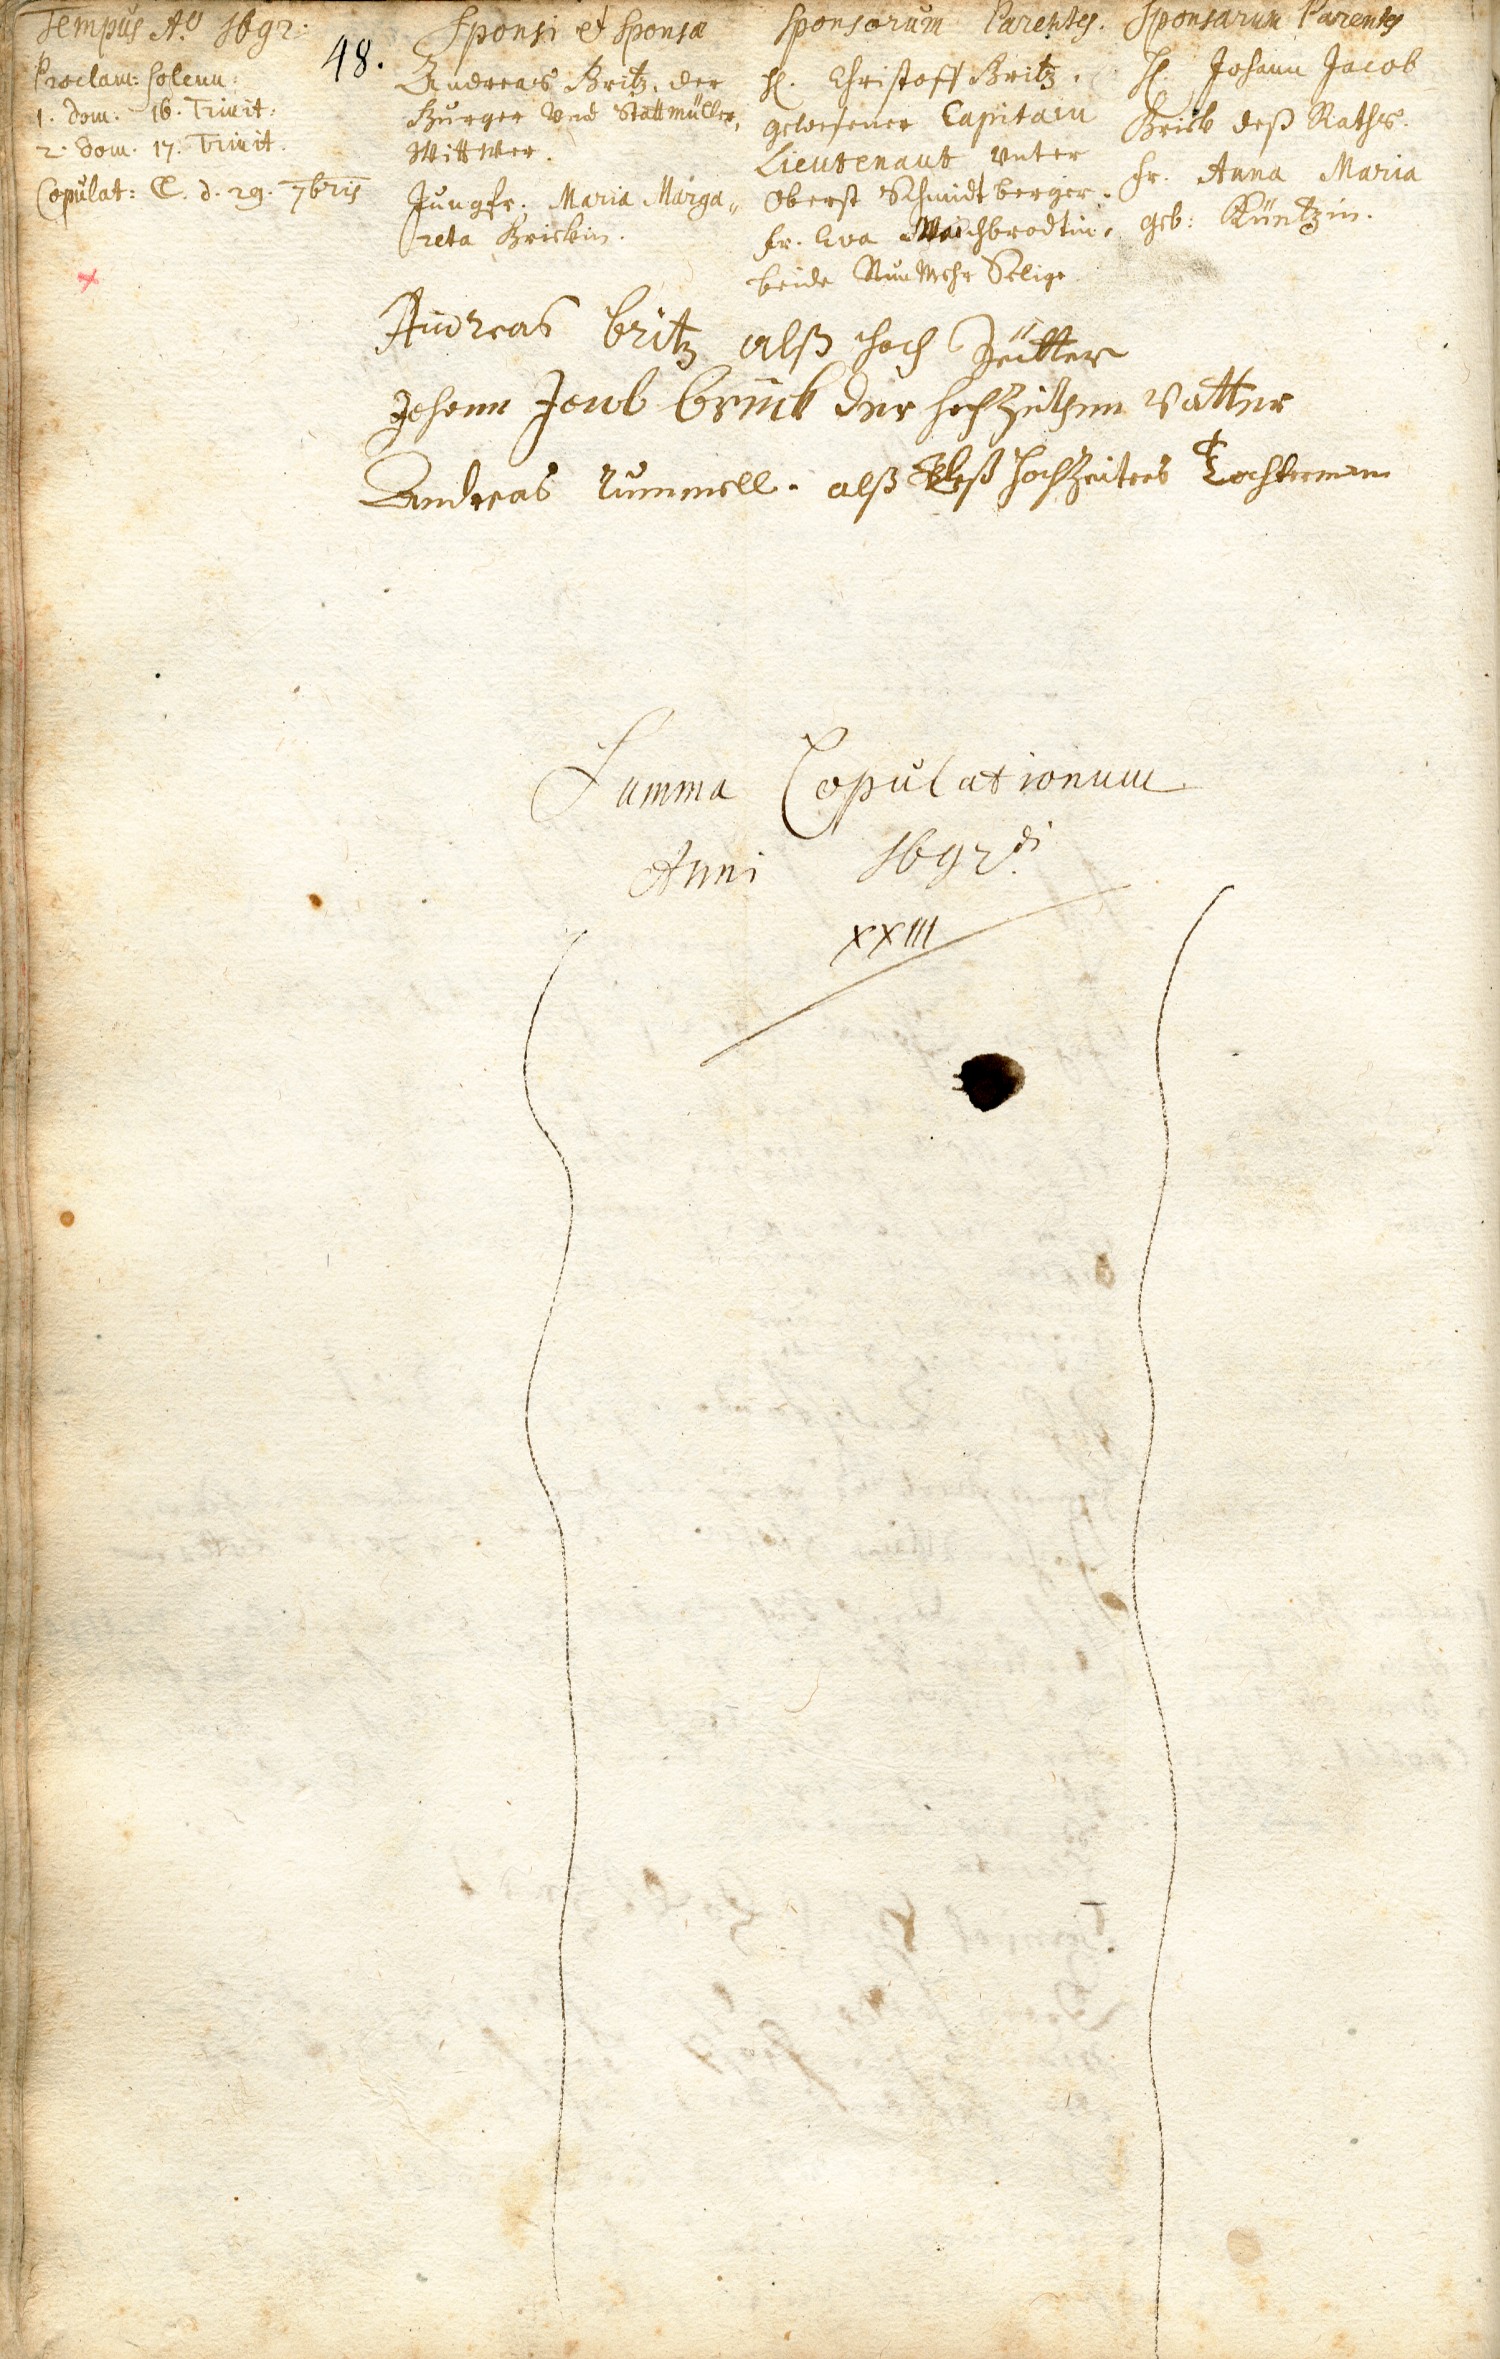 Tempus Aº 1692.
Proclam: solenn:
1. Dom. 16. Trinit:
2. Dom. 17. Trinit.
Copulat: C. d. 29. 7bris
48.
Sponsi et Sponsa
Andreas Britz, der
Burger und Stattmüller,
Wittwer.
Jungfr. Maria Marga„
reta Brickin.
Sponsorum Parentes.
H. Christoff Britz,
gewesener Capitain
Lieutenant unter
Oberst Schmidtberger.
fr. Eva Waichbrodtin,
beide Nun Mehr Selige.
Sponsarum Parentes
H. Johann Jacob
Brick deß Raths.
fr. Anna Maria
geb: Küntzin.
Andreas britz alß hoch Zeitter
Johann Jacob brück der hochzeitherin Vatter
Andreas Rummell. alß deß Hochzeiters Tochterman
Summa Copulationum
Anni 1692.di
XXIII